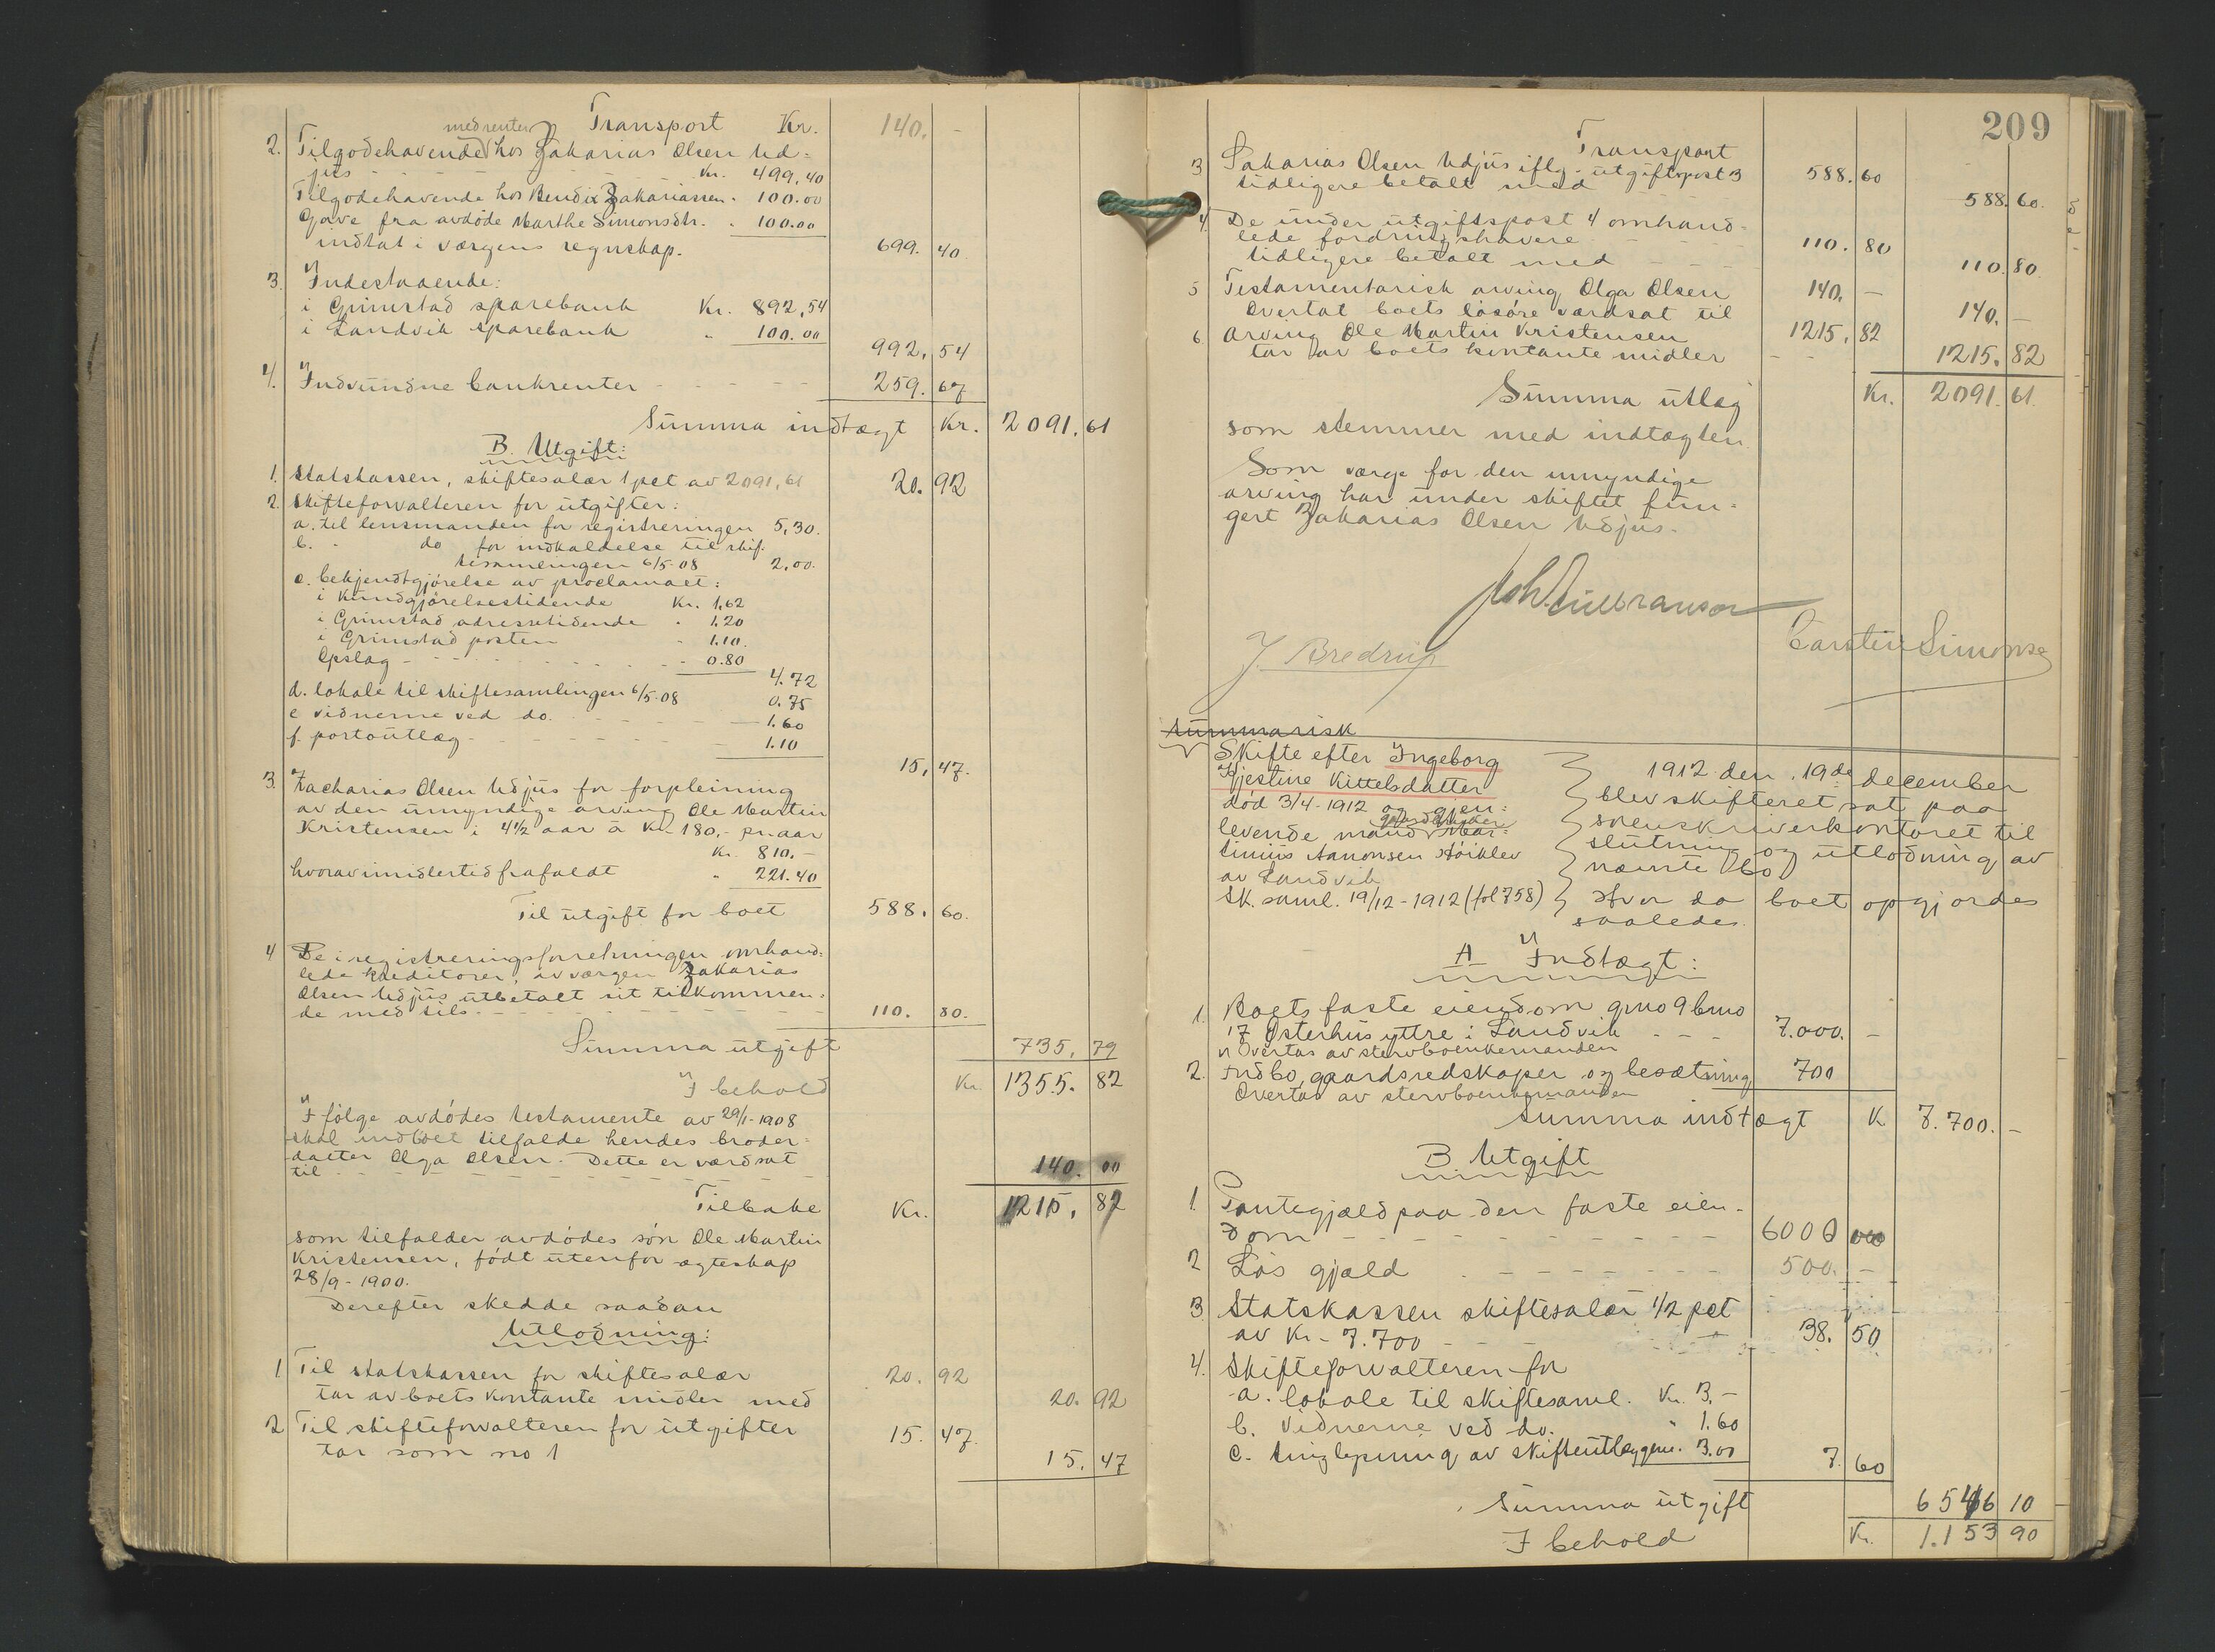 Transport Kr. 140. -
2. Tilgodehavende med renter hos Zakarias Olsen Ud=
jus - - - Kr. 499,40
Tilgodehavende hos Bendix Zakariassen " 100.00
Gave fra avdöde Marthe Simonsdtr. " 100.00
indtat i værgens regnskap. 699. 40
3. Indestaaende:
i Grimstad sparebank Kr. 892,54
i Landvik sparebank " 100.00
992, 54
4. Indvundne bankrenter - - - - - 259. 67
Summa indtægt Kr. 2091. 61
B. Utgift:
1. Statskassen, skiftesalær 1 pct av 2091,61 20. 92
2. Skifteforvalteren for utgifter:
a. til lensmanden for registreringen 5,30.
b. " do for indkaldelse til skif-
tesamlingen 6/5-08 2,00.
c. bekjendtgjörelse av proclamaet:
i Kundgjörelsestidende Kr. 1,62
i Grimstad adressetidende " 1.20
i Grimstad posten " 1.10.
Opslag - - - - 0.80
4.72
d. lokale til skiftesamlingen 6/5-08 0.75
e vidnerne ved do. - - - 1.60
f. portoutlæg - - - - 1.10
15, 47.
3. Zacharias Olsen Udjus for forpleining
av den umyndige arving Ole Martin
Kristensen i 4 1/2 aar à Kr 180,- pr. aar
Kr. 810.-
hvorav imidlertid frafaldt " 221.40
Til utgift for boet 588. 60.
4 De i registreringsforretningen omhand=
lede kreditorer, av værgen Zakarias
Olsen Udjus utbetalt sit tilkommen=
de med tils. - - - - 110. 80.
Summa utgift 735, 79
I behold Kr. 1355. 82
I fölge avdödes testamente av 29/1-1908
skal indboet tilfalde hendes broder=
datter Olga Olsen. Dette er værdsat
til - - - - - 140. 00
Tilbake Kr. 1215, 82
som tilfalder avdödes sön Ole Martin
Kristensen, födt utenfor ægteskap
28/9-1900.
Derefter skedde saadan
Utlodning:
1 Til statskassen for skiftesalær 20. 92
tar av boets kontante midler med 20. 92
2 Til skifteforvalteren for utgifter 15. 47.
tar som no 1 15. 47
209
Transport
3 Sakarias Olsen Udjus iflg. utgiftspost 3 588. 60
tidligere betalt med 588. 60.
4. De under utgiftspost 4 omhand=
lede fordringshavere - - - 110. 80
tidligere betalt med - - - 110. 80.
5 Testamentarisk arving Olga Olsen 140. -
Overtat boets lösöre værdsat til 140. -
6 Arving Ole Martin Kristensen 1215. 82
tar av boets kontante midler - - 1215. 82
Summa utlæg Kr. 2091. 61.
som stemmer med indtægten.
Som værge for den umyndige
arving har under skiftet fun=
gert Zakarias Olsen Udjus.
J. Bredrup
Carsten Simonse
summarisk
Skifte efter Ingeborg
Kjestine Kittelsdatter
död 3/4-1912 og gjen=
levende mand gaardbruker Mar=
tinius Aanonsen Höiklev
av Landvik
Sk. saml. 19/12-1912 (fol 758)
1912 den 19de december
blev skifteret sat paa
sorenskriverkontoret til
slutning og utlodning av
nævnte bo
Hvor da boet opgjordes
saaledes.
A Indtægt:
1. Boets faste eiendom gno 9 bno
17 Österhus yttre i Landvik - - - 7.000. -
Overtas av stervboenkemanden
2. Indbo, gaardsredskaper og besætning 700
Overtas av stervboenkemanden
Summa indtægt K 7.700. -
B. Utgift
1. Pantegjæld paa den faste eien-
dom - - - - - 6000
2 Lös gjæld - - - - - 500. -
3 Statskassen skiftesalær 1/2 pct
av Kr - 7.700 - - - 38. 50
4. Skifteforvalteren for
a. lokale til skiftesaml. Kr. 3.-
b. Vidnerne ved do. " 1.60
c. tinglysning av skifteutlæggene. 3.00
7. 60
Summa utgift 6546 10
I behold Kr. 1.153 90